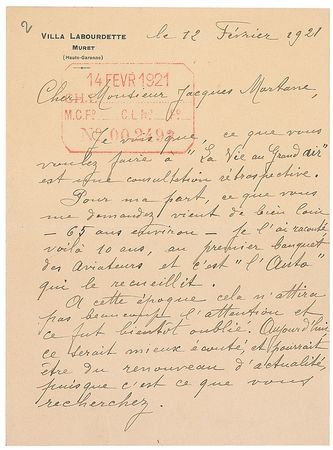 2
VILLA LABOURDETTE
MURET
(HAUTE-GARONNE)
le 12 Février 1921
14 FEVR 1921
Cher Monsieur Jacques Mortane,
M.C.F° C.L.N° F°
N° 002492
Je vois que, ce que vous
voulez faire à "La Vie au Grand air"
est une consultation rétrospective.
Pour ma part, ce que vous
me demandez vient de bien loin
- 65 ans environ - Je l'ai raconté,
voilà 10 ans, au premier banquet
des Aviateurs et c'est "l'Auto"
qui le recueillit.
A cette époque cela n'attira
pas beaucoup l'attention et
ce fut bientôt oublié. Aujourd'hui
ce serait mieux écouté, et pourrait
être du renouveau d'actualité,
puisque c'est ce que vous
recherchez.